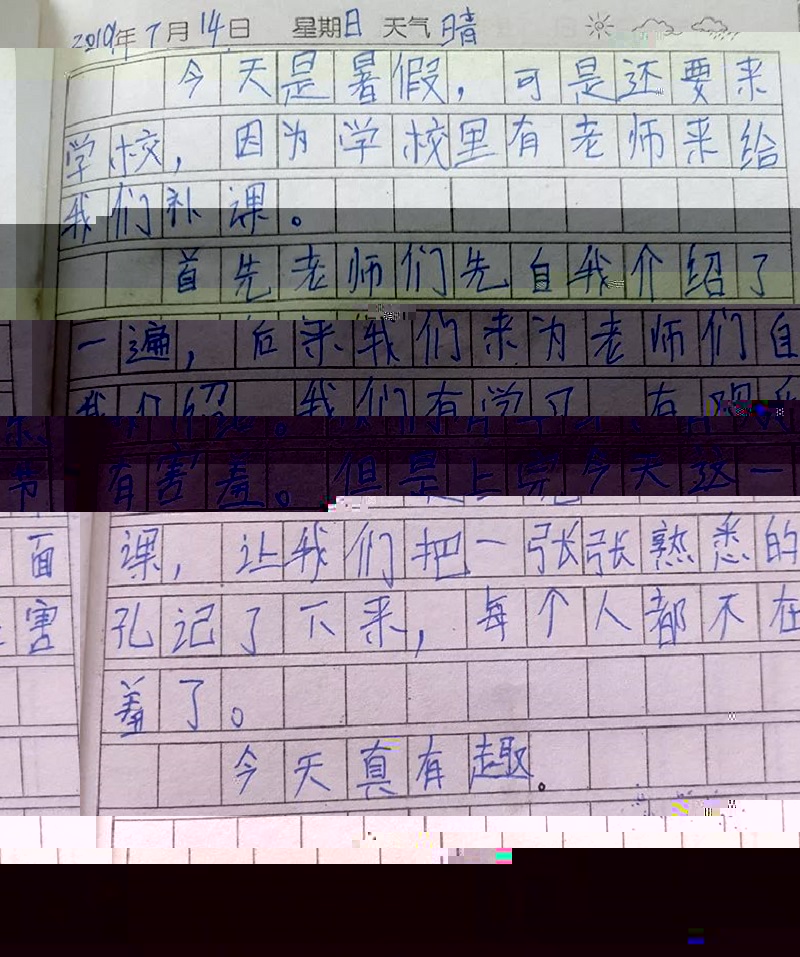 2019年7月14日 星期日 天气晴
今天是暑假，可是还要来
学校，因为学校里有老师来给
我们补课。
首先老师们先自我介绍了
一遍，后来我们来为老师们自
我介绍。我们有学习
有害羞。但是上完今天这一
课，让我们把一张张熟悉的面
孔记了下来，每个人都不在害
羞了。
今天真有趣。